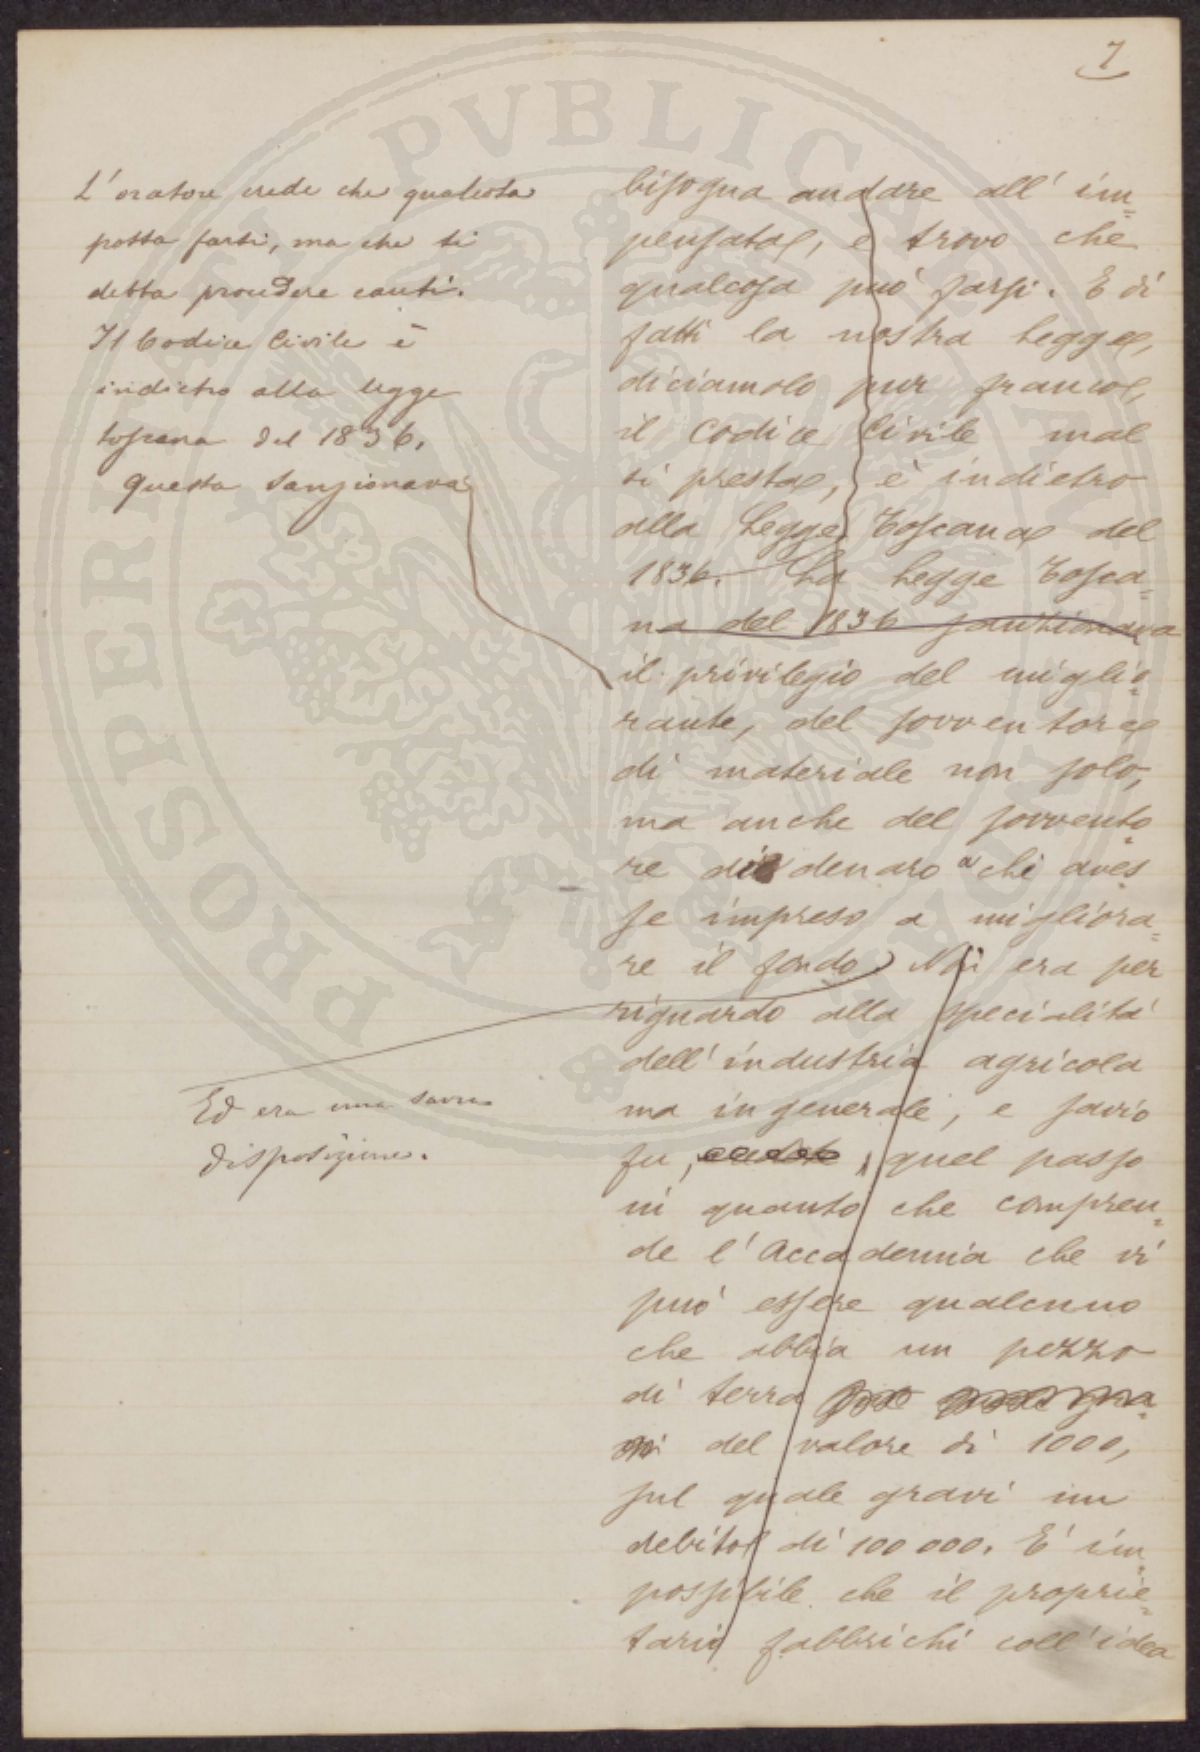 7
L'oratore crede che qualcosa
possa farsi, ma che si
debba procedere cauti.
Il Codice Civile è
indietro alla legge
toscana del 1836.
Questa sanzionava
Ed era una savia
disposizione.
bisogna andare all'im=
pensata, e trovo che
qualcosa può farsi. E di
fatti la nostra legge,
diciamolo pur franco,
il Codice Civile mal
si presta, è indietro
alla Legge Toscana del
1836. La Legge Tosca=
na del 1836 sanzionava
il privilegio del miglio=
rante, del sovventore
di materiale non solo,
ma anche del sovvento=
re di denaro a chi aves
se impreso a migliora=
re il fondo. Non era per
riguardo alla specialità
dell'industria agricola
ma in generale, e savio
fu, quel passo
in quanto che compren=
de l'Accademia che vi
può essere qualcuno
che abbia un pezzo
di terra
del valore di 1000,
sul quale gravi un
debito di 100 000. E' im=
possibile che il proprie=
tario fabbrichi coll'idea
PROSPERITATI PVBLICAE AVGENDAE